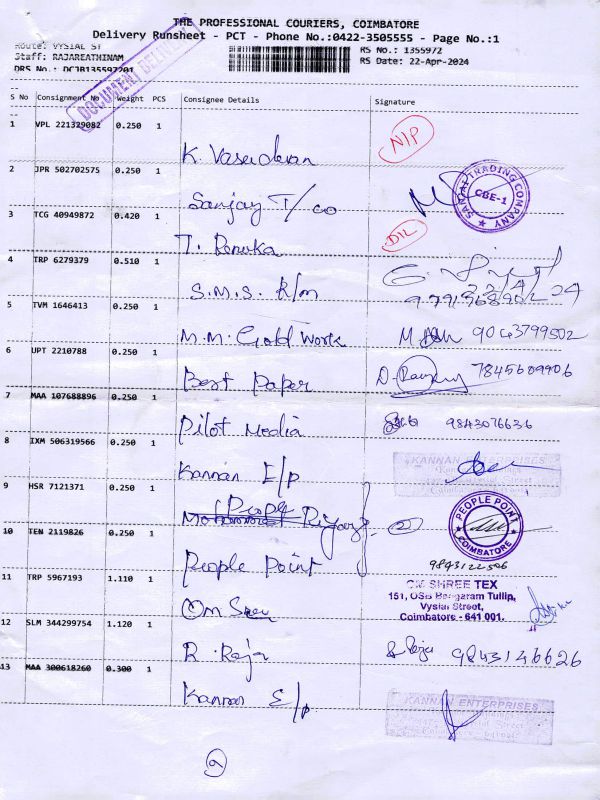 THE PROFESSIONAL COURIERS, COIMBATORE
Delivery Runsheet - PCT - Phone No.:0422-3505555 - Page No.:1
Route: VYSIAL ST
Staff: RAJAREATHINAM
DRS No.: DCJB135597201
RS No.: 1355972
RS Date: 22-Apr-2024
DOCUMENT DELIVERY
S No Consignment No Weight PCS Consignee Details Signature
1 VPL 221329082 0.250 1 K. Vasudevan NIP
2 JPR 502702575 0.250 1 Sanjay T/co SANJAI TRADING COMPANY CBE-1
3 TCG 40949872 0.420 1 T. Renuka D/L
4 TRP 6279379 0.510 1 S.M.S. R/m 22/4/24
9791368902
5 TVM 1646413 0.250 1 M.M. Gold Work 9043799502
6 UPT 2210788 0.250 1 Best Paper 7845609906
7 MAA 107688896 0.250 1 Pilot Media 9843076636
8 IXM 506319566 0.250 1 Kannan E/p KANNAN ENTERPRISES
9 HSR 7121371 0.250 1 People
10 TEN 2119826 0.250 1 People Point PEOPLE POINT COIMBATORE
9843122506
11 TRP 5967193 1.110 1 Om Sree OM SHREE TEX
151, OSB Bangaram Tullip,
Vysial Street,
Coimbatore - 641 001.
12 SLM 344299754 1.120 1 R. Raja R Raja 9843146626
13 MAA 300618260 0.300 1 Kannan E/p KANNAN ENTERPRISES